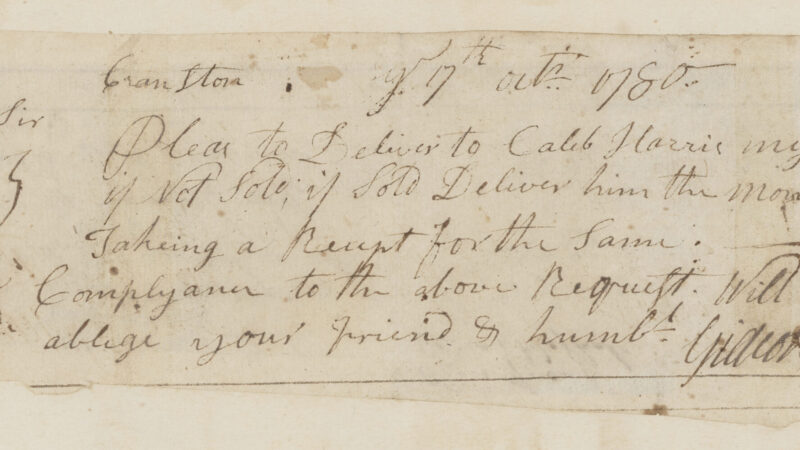 Cranston . ye 17th octr. 1780.
Sir
Pleas to Deliver to Caleb Harris my
if Not Sold; if Sold Deliver him the Mon
Takeing a Recept for the Same.
Complyance to the above Request. Will
ablege your friend & humbl.
Gideon